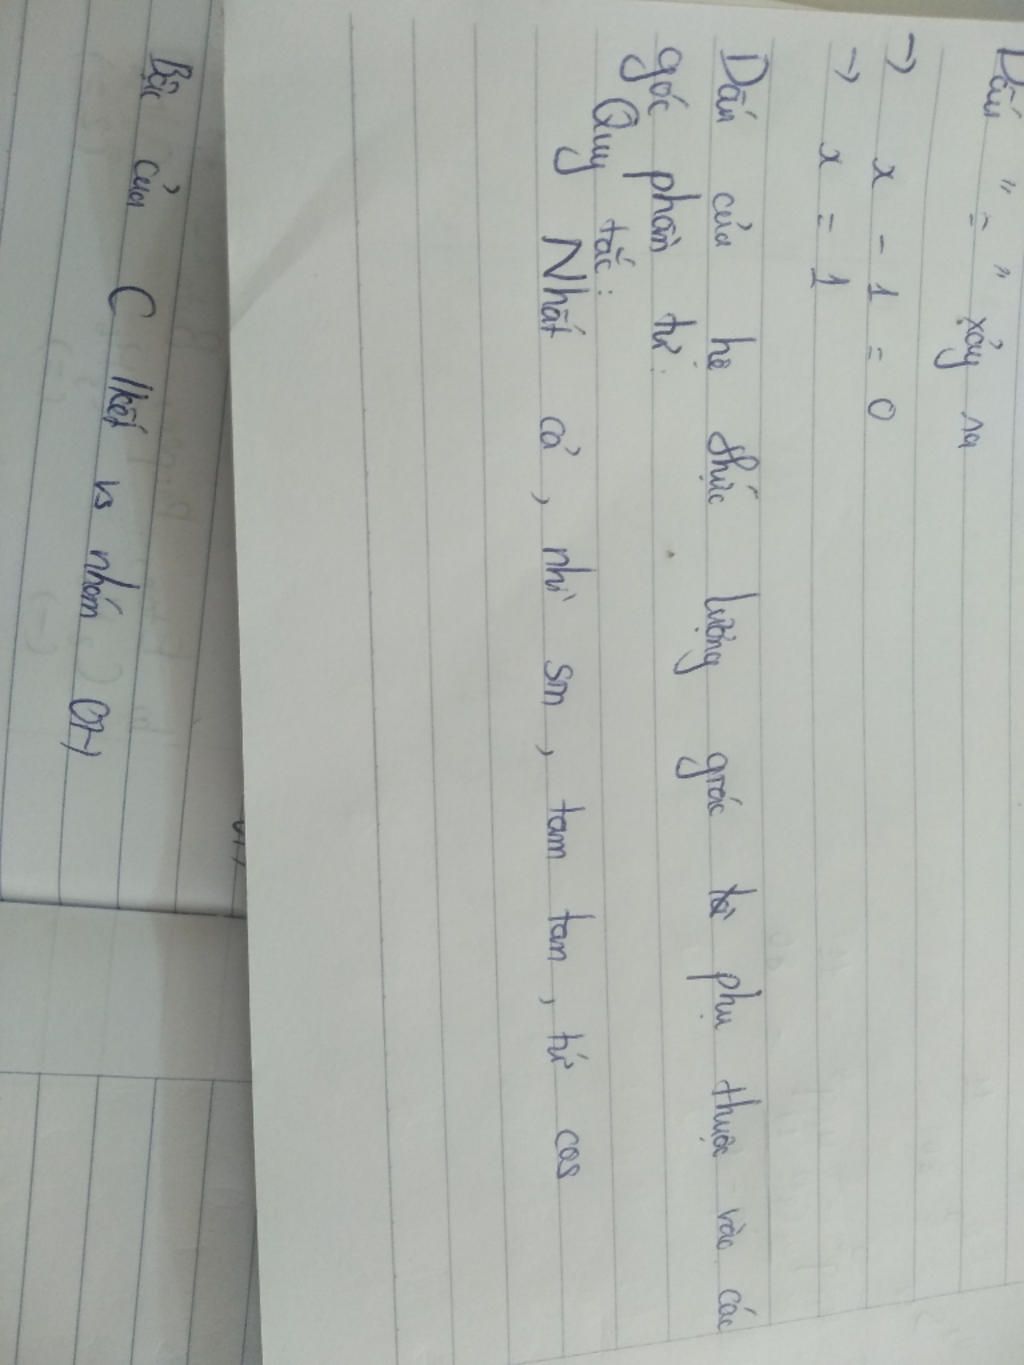 Dấu "=" xảy ra
→ x - 1 = 0
→ x = 1
Dấu của hệ thức lượng giác phụ thuộc vào các
góc phần tư.
Quy tắc:
Nhất cả, nhì sin, tam tan, tứ cos
Bậc của C lkết vs nhóm OH